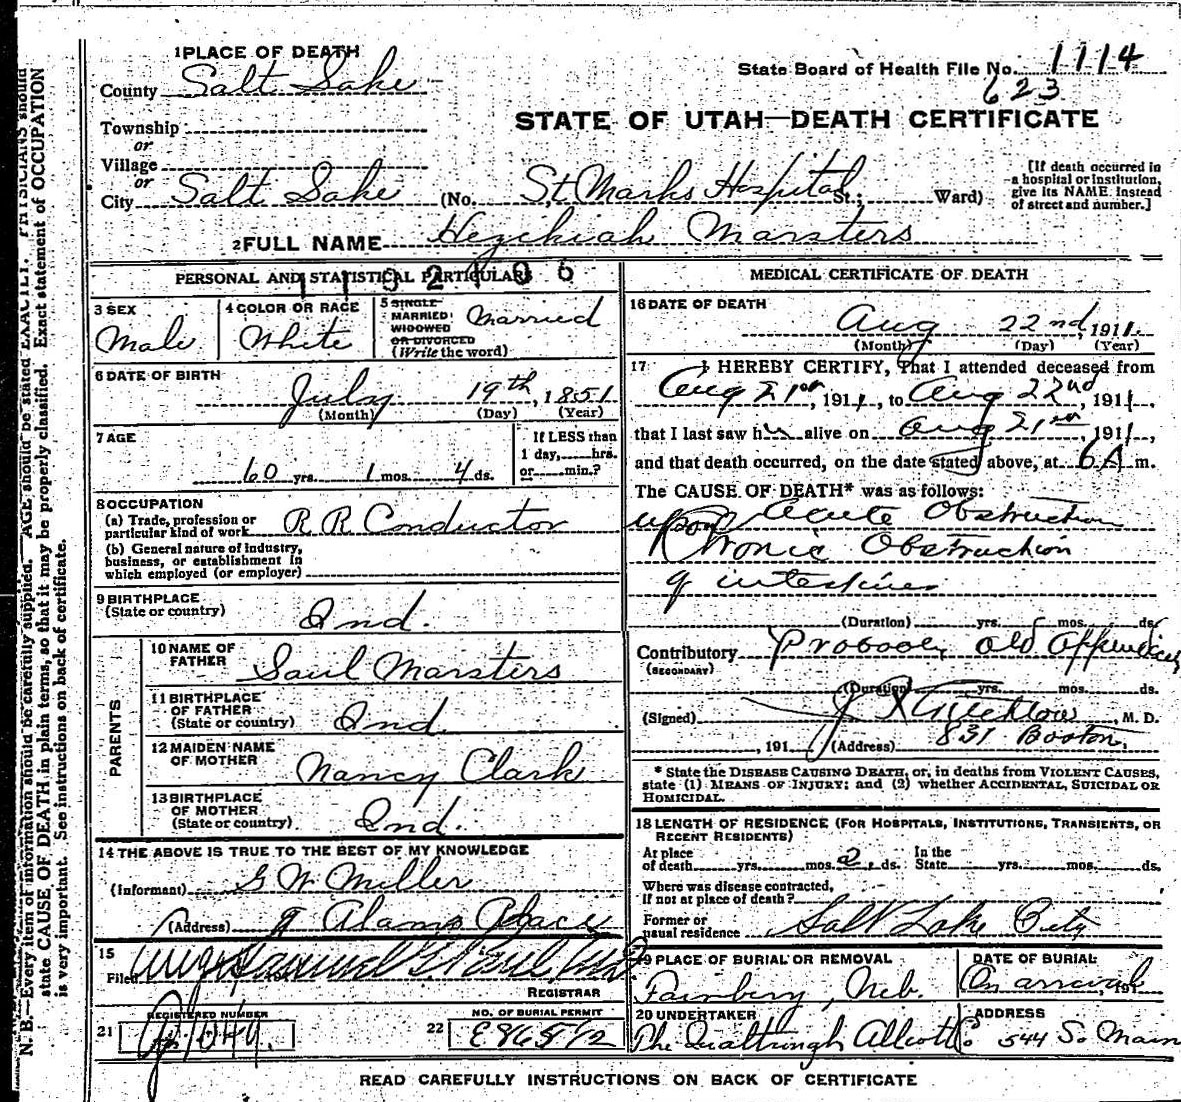 1 PLACE OF DEATH
County Salt Lake
State Board of Health File No. 1114
623
Township
or
Village
or
City Salt Lake (No. St. Marks Hospital St.; Ward)
STATE OF UTAH—DEATH CERTIFICATE
[If death occurred in
a hospital or institution,
give its NAME instead
of street and number.]
2 FULL NAME Hezikiah Marsters
PERSONAL AND STATISTICAL PARTICULARS
3 SEX
Male
4 COLOR OR RACE
White
5 SINGLE
MARRIED
WIDOWED
OR DIVORCED
(Write the word)
Married
6 DATE OF BIRTH
July 19th, 1851
(Month) (Day) (Year)
7 AGE
60 yrs. 1 mos. 4 ds.
If LESS than
1 day, hrs.
or min.?
8 OCCUPATION
(a) Trade, profession or
particular kind of work R R Conductor
(b) General nature of industry,
business, or establishment in
which employed (or employer)
9 BIRTHPLACE
(State or country) Ind.
PARENTS
10 NAME OF
FATHER Saul Marsters
11 BIRTHPLACE
OF FATHER
(State or country) Ind.
12 MAIDEN NAME
OF MOTHER Nancy Clark
13 BIRTHPLACE
OF MOTHER
(State or country) Ind.
14 THE ABOVE IS TRUE TO THE BEST OF MY KNOWLEDGE
(Informant) G W Miller
(Address) Place
15
Filed Aug
REGISTRAR
REGISTERED NUMBER
21
NO. OF BURIAL PERMIT
22
MEDICAL CERTIFICATE OF DEATH
16 DATE OF DEATH
Aug 22nd, 1911.
(Month) (Day) (Year)
17 I HEREBY CERTIFY, That I attended deceased from
Aug 21st, 1911, to Aug 22nd, 1911,
that I last saw him alive on Aug 21st, 1911,
and that death occurred, on the date stated above, at 6 A m.
The CAUSE OF DEATH* was as follows:
Acute Obstruction
upon Chronic Obstruction
of intestines
(Duration) yrs. mos. ds.
Contributory Probably old Appendicitis
(SECONDARY)
(Duration) yrs. mos. ds.
(Signed) , M. D.
, 191 (Address) 831 Boston.
* State the DISEASE CAUSING DEATH, or, in deaths from VIOLENT CAUSES,
state (1) MEANS OF INJURY; and (2) whether ACCIDENTAL, SUICIDAL OR
HOMICIDAL.
18 LENGTH OF RESIDENCE (FOR HOSPITALS, INSTITUTIONS, TRANSIENTS, OR
RECENT RESIDENTS)
At place
of death yrs. mos. 2 ds.
In the
State yrs. mos. ds.
Where was disease contracted,
if not at place of death?
Former or
usual residence Salt Lake City
19 PLACE OF BURIAL OR REMOVAL
Fairbury, Neb.
DATE OF BURIAL
On arrival, 191
20 UNDERTAKER
The Allcott Co
ADDRESS
544 So Main
READ CAREFULLY INSTRUCTIONS ON BACK OF CERTIFICATE
N. B.—Every item of information should be carefully supplied. AGE should be stated EXACTLY. PHYSICIANS should
state CAUSE OF DEATH in plain terms, so that it may be properly classified. Exact statement of OCCUPATION
is very important. See instructions on back of certificate.